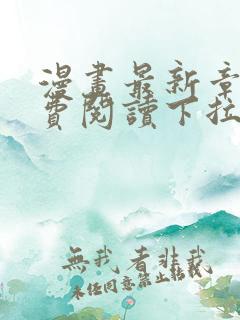 漫畫最新章
費閱讀下拉
無我者非我
未經同意禁止転載